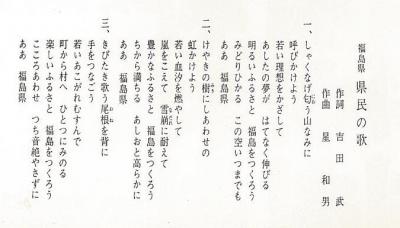 福島県 県民の歌
作詞 吉田武
作曲 星和男
一、しゃくなげ匂う山なみに
呼びかけよう
若い理想をかざして
あしたの夢が はてなく伸びる
明るいふるさと 福島をつくろう
みどりひかる この空いつまでも
ああ 福島県
二、けやきの樹にしあわせの
虹かけよう
若い血汐を燃やして
嵐をこえて 雪崩に耐えて
豊かなふるさと 福島をつくろう
ちから満ちる あしおと高らかに
ああ 福島県
三、きびたき歌う尾根を背に
手をつなごう
若いあこがれむすんで
町から村へ ひとつにみのる
楽しいふるさと 福島をつくろう
こころあわせ つち音絶やさずに
ああ 福島県